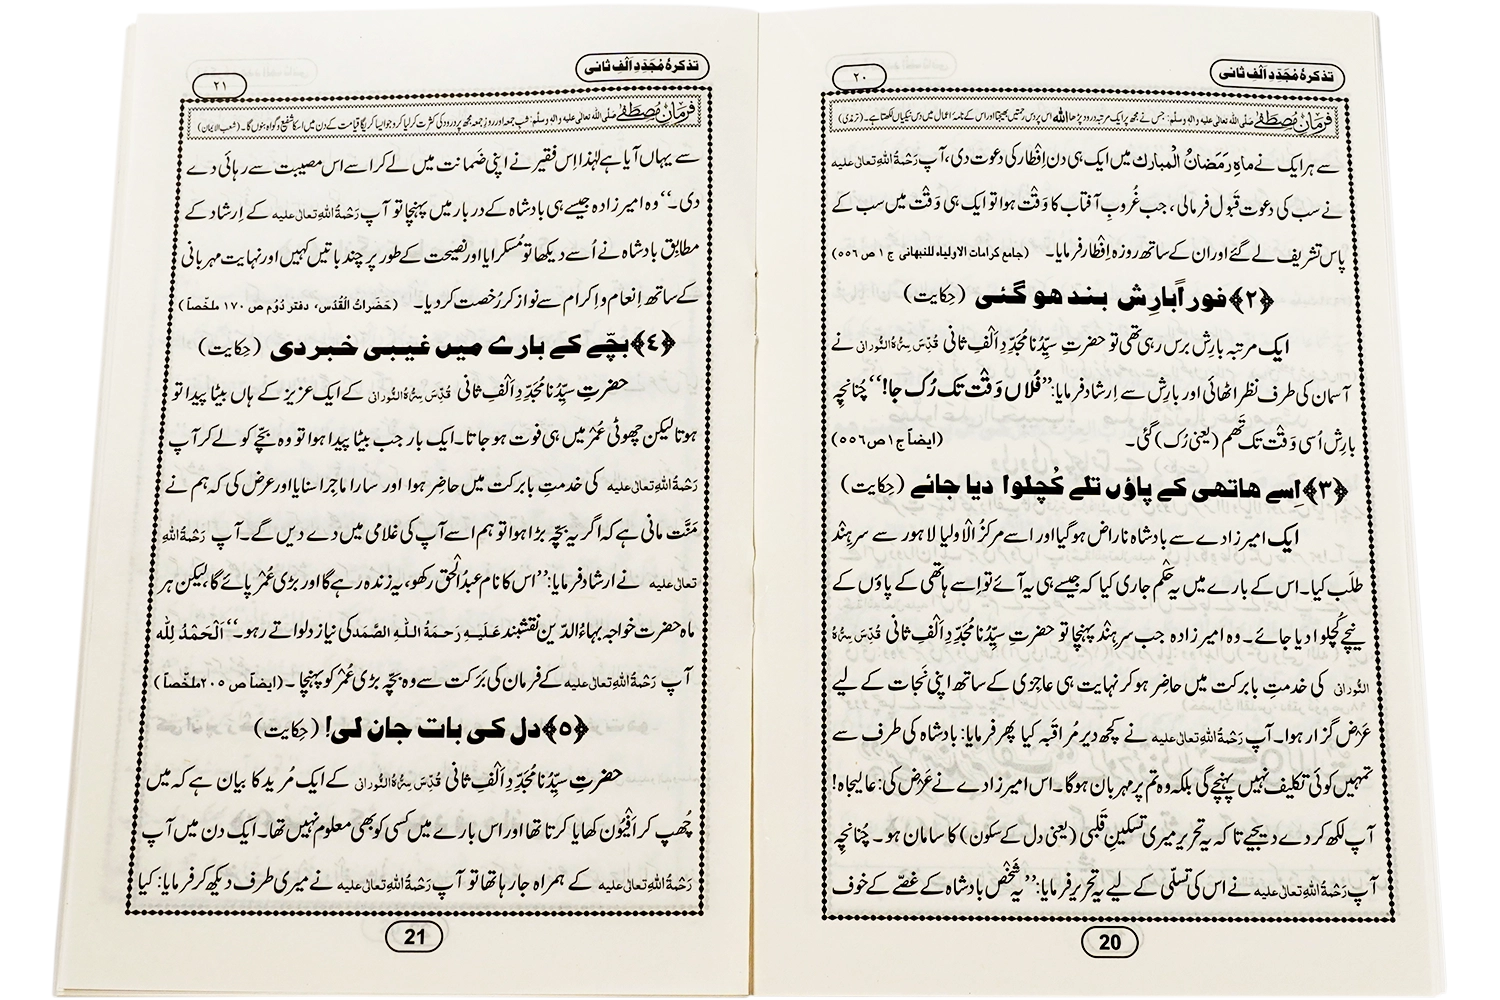 تذکرۂ مُجَدِّدِ اَلفِ ثانی
۲۰
فرمانِ مُصطَفٰے صلی اللہ تعالٰی علیہ والہٖ وسلم: جس نے مجھ پر ایک مرتبہ درود پڑھا اللہ اس پر دس رحمتیں بھیجتا اور اس کے نامۂ اعمال میں دس نیکیاں لکھتا ہے۔ (ترمذی)
سے ہر ایک نے ماہِ رَمَضانُ الْمبارک میں ایک ہی دن اِفْطار کی دعوت دی، آپ رَحْمَۃُ اللہِ تعالٰی علیہ
نے سب کی دعوت قَبول فرمالی، جب غُروبِ آفتاب کا وَقْت ہوا تو ایک ہی وَقْت میں سب کے
پاس تشریف لے گئے اور ان کے ساتھ روزہ اِفْطار فرمایا۔ (جامع کرامات الاولیاء للنبھانی ج ۱ ص ۵۵٦)
﴿۲﴾ فوراً بارِش بند ہو گئی (حِکایت)
ایک مرتبہ بارِش برس رہی تھی تو حضرتِ سیِّدُنا مُجَدِّدِ اَلْفِ ثانی قُدِّسَ سِرُّہُ النُّورانی نے
آسمان کی طرف نظر اٹھائی اور بارِش سے اِرشاد فرمایا: ”فُلاں وَقْت تک رُک جا!“ چُنانچِہ
بارِش اُسی وَقْت تک تَھم (یعنی رُک) گئی۔ (ایضاً ج ۱ ص ۵۵٦)
﴿۳﴾ اِسے ہاتھی کے پاؤں تلے کُچلوا دیا جائے (حِکایت)
ایک امیر زادے سے بادشاہ ناراض ہو گیا اور اسے مرکزُ الْاولیا لاہور سے سرہِند
طَلَب کیا۔ اس کے بارے میں یہ حُکْم جاری کیا کہ جیسے ہی یہ آئے تو اِسے ہاتھی کے پاؤں کے
نیچے کُچلوا دیا جائے۔ وہ امیر زادہ جب سرہِند پہنچا تو حضرتِ سیِّدُنا مُجَدِّدِ اَلْفِ ثانی قُدِّسَ سِرُّہُ
النُّورانی کی خدمتِ بابرکت میں حاضِر ہو کر نہایت ہی عاجِزی کے ساتھ اپنی نَجات کے لیے
عَرْض گزار ہوا۔ آپ رَحْمَۃُ اللہِ تعالٰی علیہ نے کچھ دیر مُراقَبہ کیا پھر فرمایا: بادشاہ کی طرف سے
تمہیں کوئی تکلیف نہیں پہنچے گی بلکہ وہ تم پر مہربان ہوگا۔ اس امیر زادے نے عَرْض کی: عالیجاہ!
آپ لکھ کر دے دیجیے تاکہ یہ تحریر میری تسکینِ قَلبی (یعنی دل کے سکون) کا سامان ہو۔ چُنانچِہ
آپ رَحْمَۃُ اللہِ تعالٰی علیہ نے اس کی تسلّی کے لیے یہ تحریر فرمایا: ”یہ شَخْص بادشاہ کے غصّے کے خوف
20
تذکرۂ مُجَدِّدِ اَلفِ ثانی
۲۱
فرمانِ مُصطَفٰے صلی اللہ تعالٰی علیہ والہٖ وسلم: شبِ جمعہ اور روزِ جمعہ مجھ پر درود کی کثرت کر لیا کرو جو ایسا کریگا قیامت کے دن میں اسکا شفیع و گواہ بنوں گا۔ (شعب الایمان)
سے یہاں آیا ہے لہٰذا اِس فقیر نے اپنی ضَمانت میں لے کر اسے اس مصیبت سے رہائی دے
دی۔“ وہ امیر زادہ جیسے ہی بادشاہ کے دربار میں پہنچا تو آپ رَحْمَۃُ اللہِ تعالٰی علیہ کے اِرشاد کے
مطابِق بادشاہ نے اُسے دیکھا تو مُسکرایا اور نصیحت کے طور پر چند باتیں کہیں اور نہایت مہربانی
کے ساتھ اِنعام و اِکرام سے نواز کر رُخصت کر دیا۔ (حَضَراتُ الْقُدْس، دفتر دُوُم ص ۱۷۰ ملخّصاً)
﴿٤﴾ بچّے کے بارے میں غیبی خبر دی (حِکایت)
حضرتِ سیِّدُنا مُجَدِّدِ اَلْفِ ثانی قُدِّسَ سِرُّہُ النُّورانی کے ایک عزیز کے ہاں بیٹا پیدا تو
ہوتا لیکن چھوٹی عُمْر میں ہی فوت ہو جاتا۔ ایک بار جب بیٹا پیدا ہوا تو وہ بچّے کو لے کر آپ
رَحْمَۃُ اللہِ تعالٰی علیہ کی خدمتِ بابرکت میں حاضِر ہوا اور سارا ماجرا سنایا اور عرض کی کہ ہم نے
مَنَّت مانی ہے کہ اگر یہ بچّہ بڑا ہوا تو ہم اسے آپ کی غلامی میں دے دیں گے۔ آپ رَحْمَۃُ اللہِ
تعالٰی علیہ نے ارشاد فرمایا: ”اس کا نام عبدُ الْحق رکھو، یہ زندہ رہے گا اور بڑی عُمْر پائے گا، لیکن ہر
ماہ حضرت خواجہ بہاءُ الدّین نقشبند عَلَیہِ رَحمَۃُ اللہِ الصَّمَد کی نیاز دلواتے رہو۔“ اَلْحَمْدُ لِلّٰہ
آپ رَحْمَۃُ اللہِ تعالٰی علیہ کے فرمان کی بَرَکت سے وہ بچّہ بڑی عُمْر کو پہنچا۔ (ایضاً ص ۲۰۵ ملخّصاً)
﴿۵﴾ دل کی بات جان لی! (حِکایت)
حضرتِ سیِّدُنا مُجَدِّدِ اَلْفِ ثانی قُدِّسَ سِرُّہُ النُّورانی کے ایک مُرید کا بیان ہے کہ میں
چُھپ کر اَفْیُون کھایا کرتا تھا اور اس بارے میں کسی کو بھی معلوم نہیں تھا۔ ایک دن میں آپ
رَحْمَۃُ اللہِ تعالٰی علیہ کے ہمراہ جا رہا تھا تو آپ رَحْمَۃُ اللہِ تعالٰی علیہ نے میری طرف دیکھ کر فرمایا: کیا
21